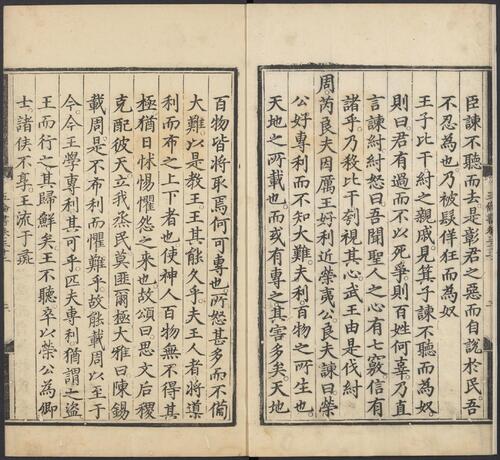 臣諫不聽而去是彰君之惡而自說於民吾
不忍為也乃被髮佯狂而為奴
王子比干紂之親戚見箕子諫不聽而為奴。
則曰君有過而不以死爭則百姓何辜乃直
言諫紂紂怒曰吾聞聖人之心有七竅信有
諸乎乃移比干刳視其心武王由是伐紂
周芮良夫因厲王好利近榮夷公良夫諫曰榮
公好專利而不知大難夫利百物之所生也
天地之所載也而或有專之其害多矣天地
百物皆將取焉何可專也所怒甚多而不備
大難以是教王王其能久乎夫王人者將導
利而布之上下者也使神人百物無不得其
極猶日怵惕懼怨之來也故頌曰思文后稷
克配彼天立我烝民莫匪爾極大雅曰陳錫
載周是不布利而懼難乎故能載周以至于
今今王學專利其可乎匹夫專利猶謂之盜
王而行之其歸鮮矣王不聽卒以榮公為卿
士諸侯不享王流于彘